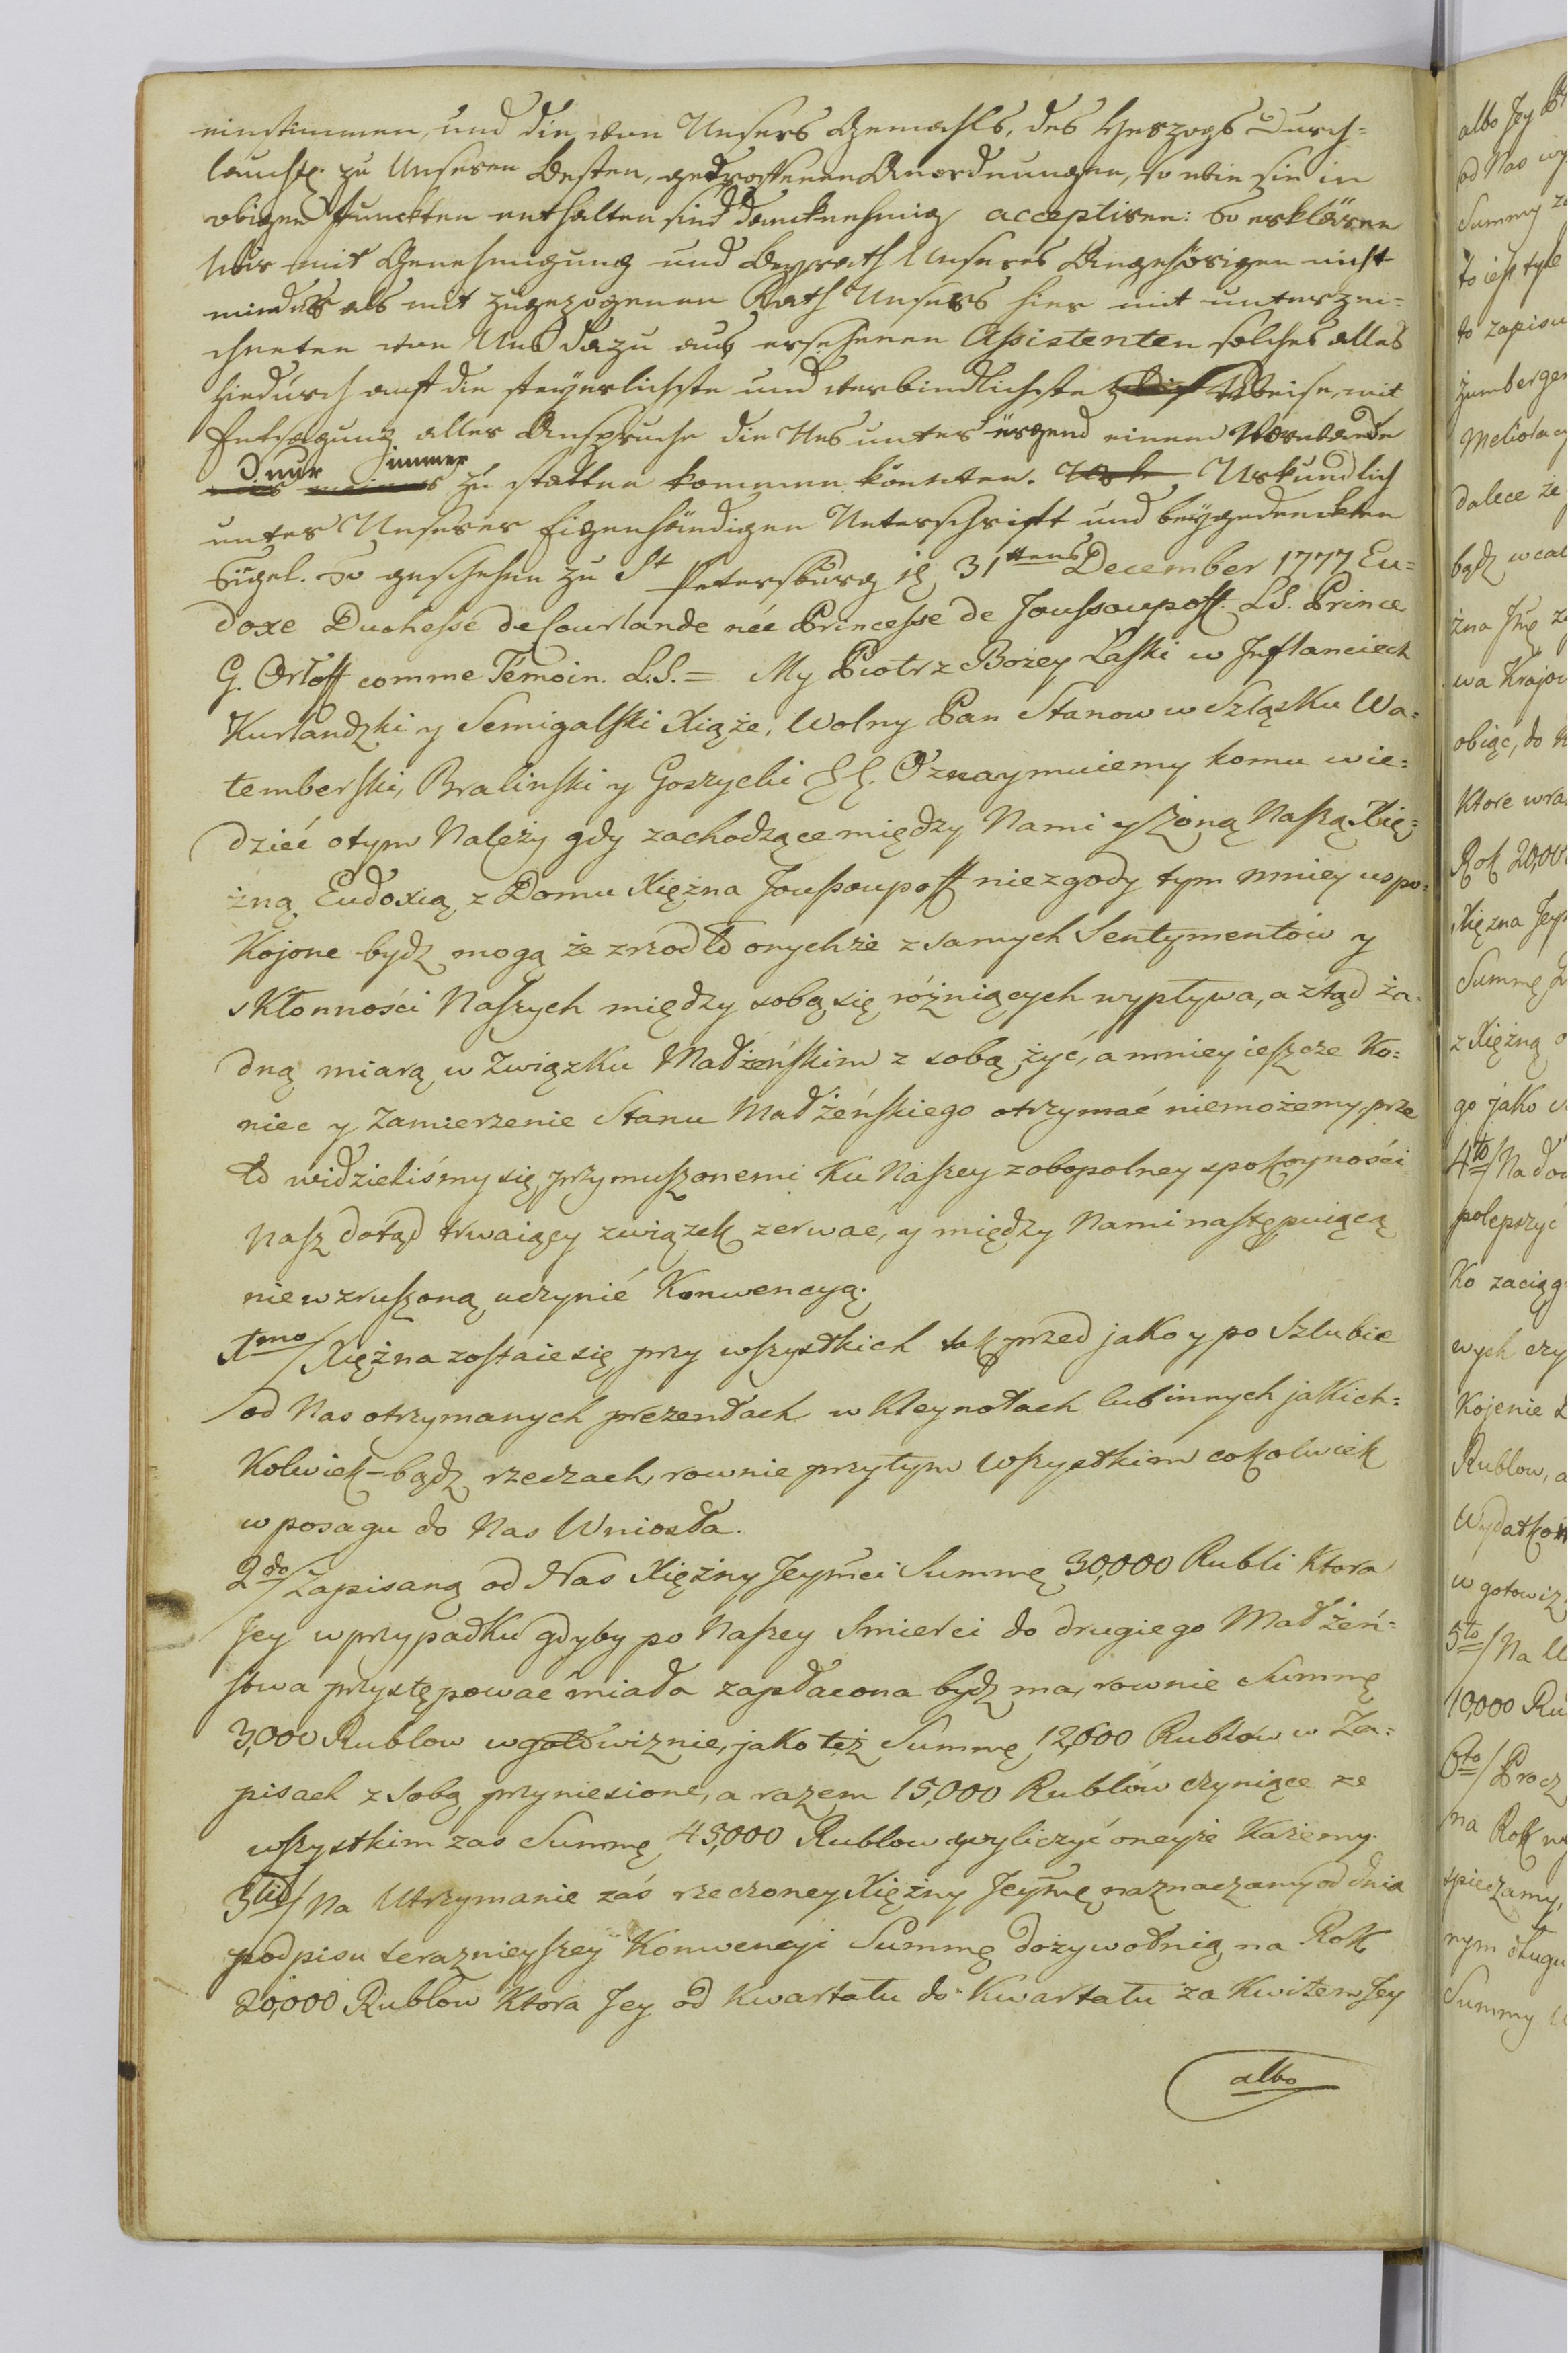 einstimmen, und die von Unsers Gemahls, des Herzogs Durch=
laucht. zu Unseren Besten, getroffenen Anordnungen, so wie sie in
obigen Puncten enthalten sind dancknehmig acceptiren: So erklären
Wir mit Genehmigung und Beyrath Unseres Angehörigen nicht
minder als mit zugezogenen Rath Unsers hier mit unterzei=
chneten von Uns dazu aus ersehenen Assistenten solches alles
hiedurch auf die feyerlichste und verbindlichste Weise, mit
Entsagung aller Ansprüche die Uns unter irgend einem Vorwande
nur immer zu statten kommen könnten. Urkundlich
unter Unserer Eigenhändigen Unterschrift und beygedruckten
Siegel. So geschehen zu St Petersburg 31tens December 1777 Eu=
doxe Duchesse de Courlande née Princesse de Joussoupoff. L.S. Prince
G. Orloff comme Témoin. L.S. = My Piotr z Bożey Łaski w Inflanciech
Kurlandzki y Semigalski Xiąże, Wolny Pan Stanow w Szląsku Wa=
temberski, Bralinski y Goszycki &&. Oznaymuiemy komu wie=
dzieć o tym Należy gdy zachodzące między Nami y Żoną Naszą Xię=
żną Eudoxią z Domu Xiężna Joussoupoff niezgody tym mniey uspo=
kojone bydz mogą że zrzodło onychże z samych Sentymentów y
skłonności Naszych między sobą się różniących wypływa, a ztąd ża=
dną miarą w Związku Małżeńskim z sobą żyć, a mniey ieszcze Ko=
niec y Zamierzenie Stanu Małżeńskiego otrzymać niemożemy, prze
to widzieliśmy się przymuszonemi Ku Naszey zobopolney spokoyności
Nasz dotąd trwaiący związek zerwać, y między Nami następuiącą
niewzruszoną uczynić Konwencyą.
1mo/ Xiężna zostaie się przy wszystkich tak przed jako y po Szlubie
od Nas otrzymanych prezentach w Kleynotach lub innych jakich=
Kolwiek-bądz rzeczach, rownie przytym wszystkim cokolwiek
w posagu do Nas Wniosła.
2do/ Zapisaną od Nas Xiężny Jeymci Summę 30,000 Rubli Ktora
Jey w przypadku gdyby po Naszey Smierci do drugiego Małżeń=
stwa przystępować miała zapłacona bydz ma, rownie Summę
3,000 Rublow w gotowiznie, jako też Summę 12,000 Rublow w Za=
pisach z Sobą przyniesione, a razem 15,000 Rublów czyniące ze
wszystkim zas Summę 45,000 Rublow wyliczyć oneyże Każemy.
3tio/ Na Utrzymanie zaś rzeczoney Xiężny Jeymę naznaczamy od dnia
podpisu terazniejszey Konwencyi Summę dożywotnią na Rok
20,000 Rublow Ktora Jey od Kwartału do Kwartału za Kwitem Jey
albo
albo Jey
od Nas
Summy
to iest tyle
to zapisu
Meliora
dalece że
bądz w cał
żna
wa Krajow
obiąć, do
Ktore
Rok 20,000
Xiężna Jey
Summę
z Xiężną
go jako
4to/ Na
polepszyć
Ko zaciąg
wych
Kojenie
Rublow, a
Wydatkow
w gotowiz
5to/ Na
10,000 Ru
6to/ Procz
na Rok
spieczamy,
nym długu
Summy